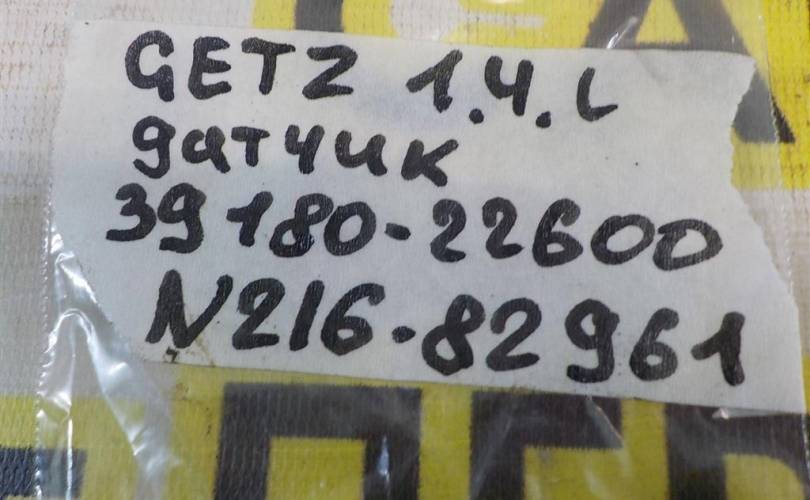 GETZ 1.4. L
датчик
39180-22600
N216-82961